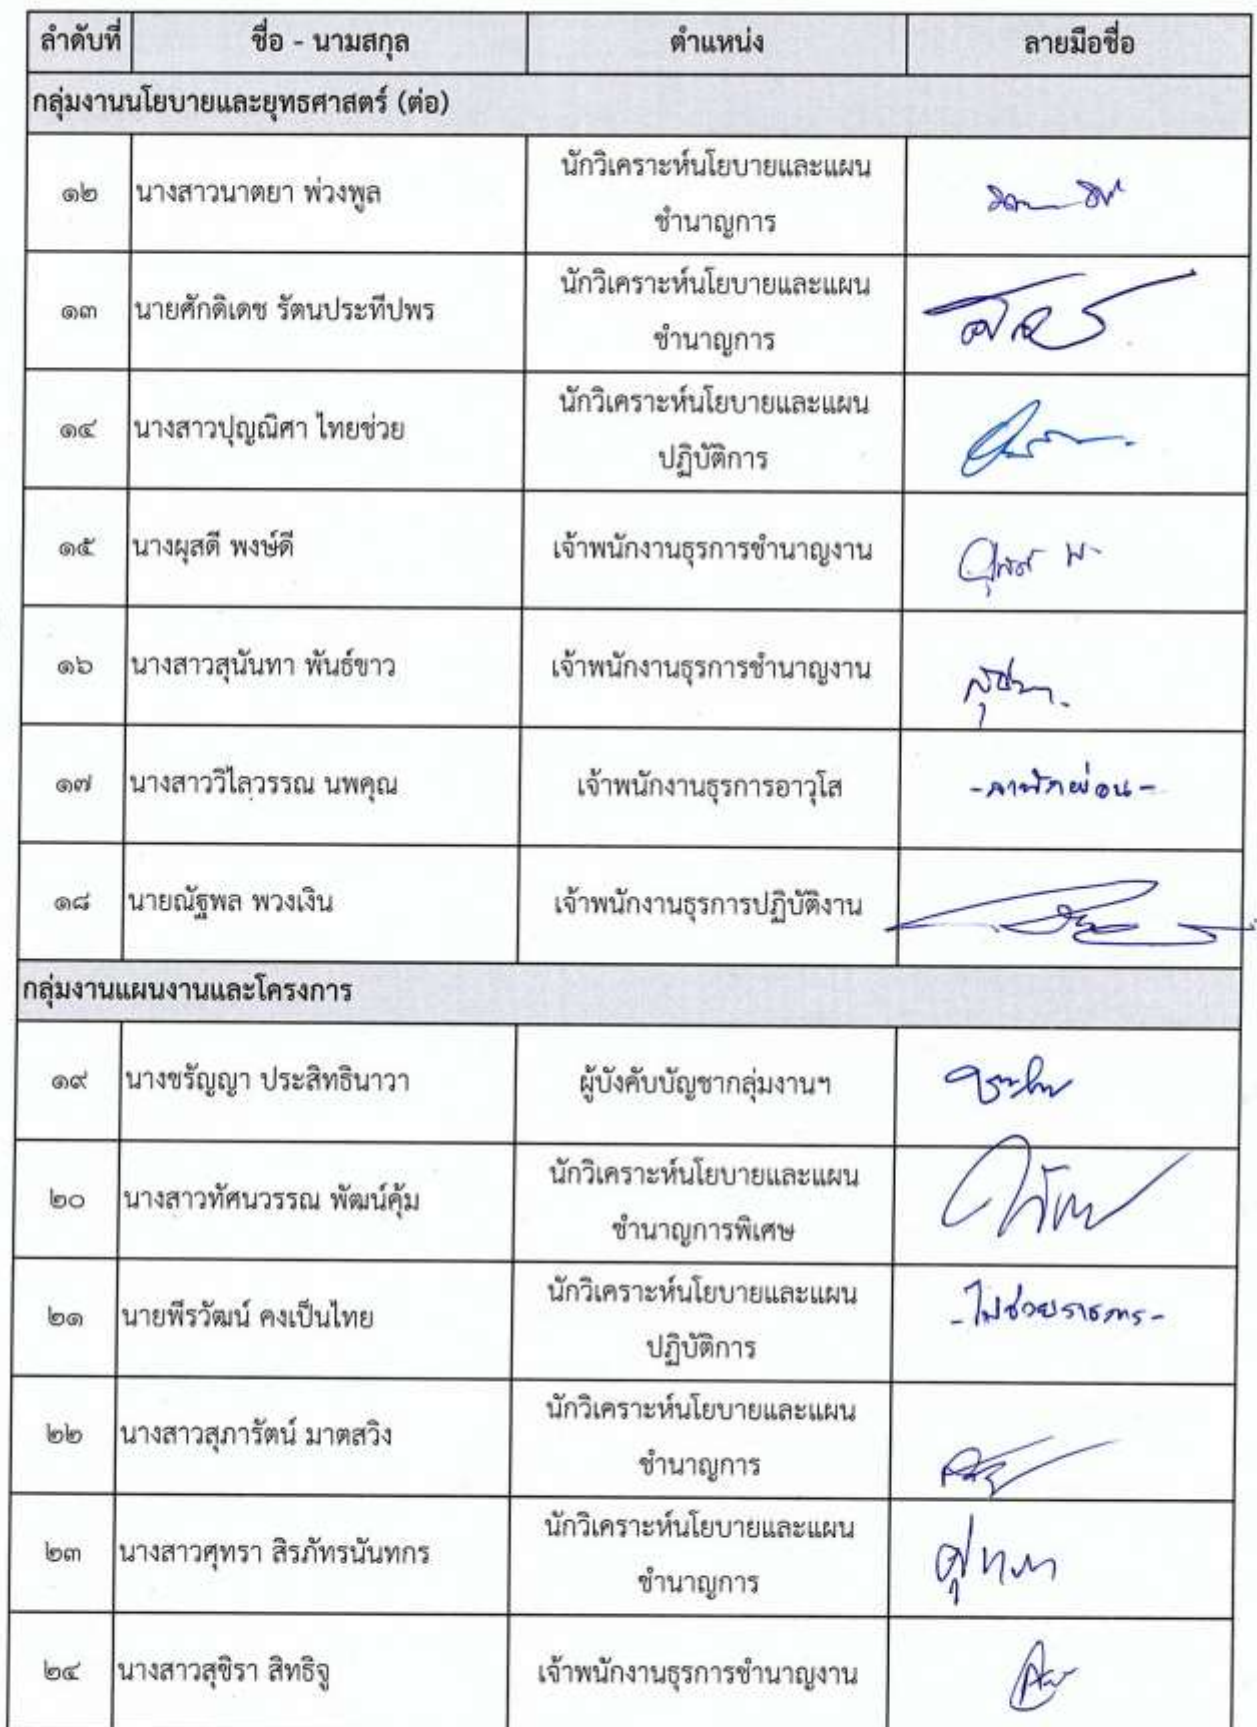 ลำดับที่ ชื่อ - นามสกุล ตำแหน่ง ลายมือชื่อ
กลุ่มงานนโยบายและยุทธศาสตร์ (ต่อ)
๑๒ นางสาวนาตยา พ่วงพูล นักวิเคราะห์นโยบายและแผน
ชำนาญการ
๑๓ นายศักดิเดช รัตนประทีปพร นักวิเคราะห์นโยบายและแผน
ชำนาญการ
๑๔ นางสาวปุญณิศา ไทยช่วย นักวิเคราะห์นโยบายและแผน
ปฏิบัติการ
๑๕ นางผุสดี พงษ์ดี เจ้าพนักงานธุรการชำนาญงาน
๑๖ นางสาวสุนันทา พันธ์ขาว เจ้าพนักงานธุรการชำนาญงาน
๑๗ นางสาววิไลวรรณ นพคุณ เจ้าพนักงานธุรการอาวุโส -ลาพักผ่อน-
๑๘ นายณัฐพล พวงเงิน เจ้าพนักงานธุรการปฏิบัติงาน
กลุ่มงานแผนงานและโครงการ
๑๙ นางขรัญญา ประสิทธินาวา ผู้บังคับบัญชากลุ่มงานฯ
๒๐ นางสาวทัศนวรรณ พัฒน์คุ้ม นักวิเคราะห์นโยบายและแผน
ชำนาญการพิเศษ
๒๑ นายพีรวัฒน์ คงเป็นไทย นักวิเคราะห์นโยบายและแผน -ไปช่วยราชการ-
ปฏิบัติการ
๒๒ นางสาวสุภารัตน์ มาตสวิง นักวิเคราะห์นโยบายและแผน
ชำนาญการ
๒๓ นางสาวศุทรา สิรภัทรนันทกร นักวิเคราะห์นโยบายและแผน
ชำนาญการ
๒๔ นางสาวสุชิรา สิทธิจู เจ้าพนักงานธุรการชำนาญงาน